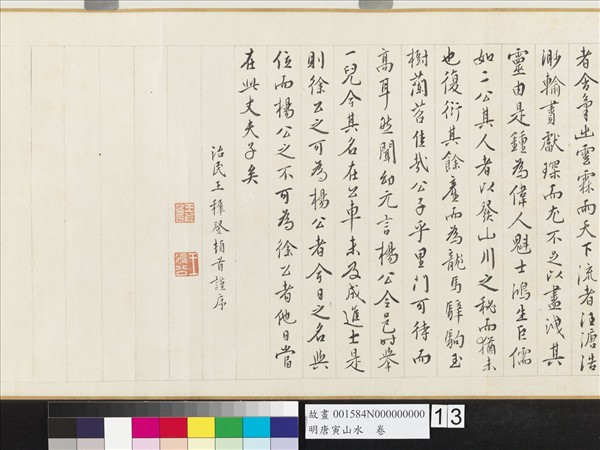 者舍筆出雲霖雨天下流者汪濊浩
渺輸賮獻琛而尤不足以盡洩其
靈由是鍾為偉人魁士鴻生巨儒
如二公其人者以發山川之秘而猶未
也復衍其餘慶而為龍馬騂駒玉
樹蘭苕佳哉公子乎里門可待而
高耳然聞幼元言楊公令邑時舉
一兒今其名在公車未及成進士是
則徐公之可為楊公者今日之名與
位而楊公之不可為徐公者他日當
在此丈夫子矣
治民王穉登頓首謹序
故畫 001584N000000000
明唐寅山水 卷
13